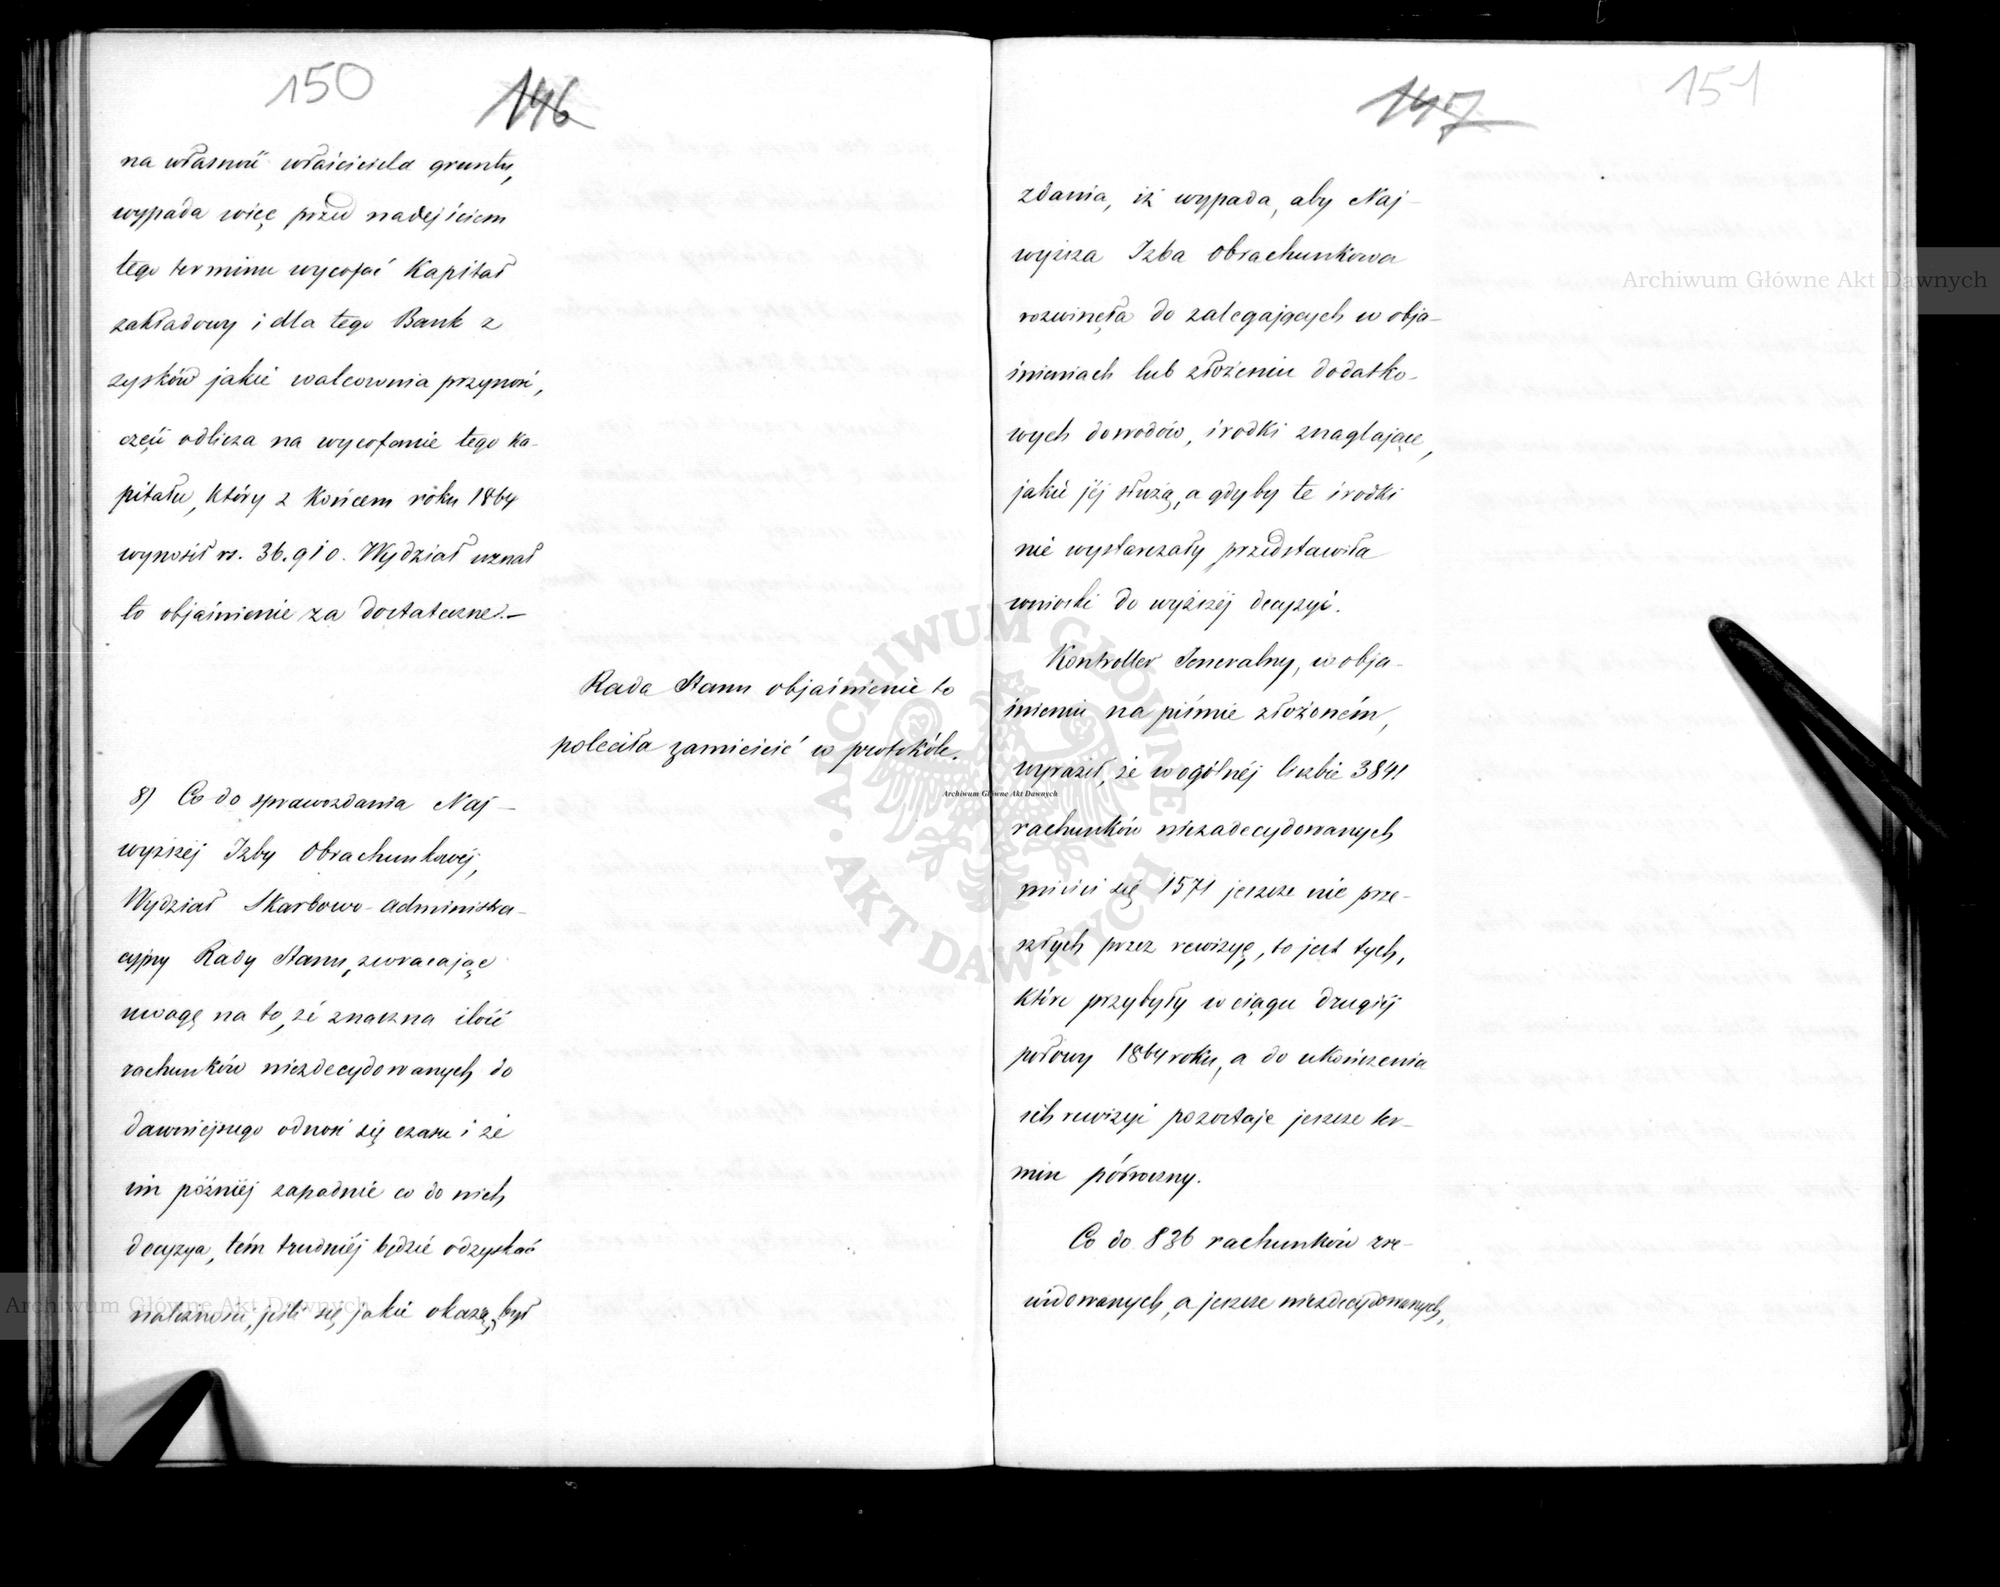 150
146
na własność właściciela gruntu,
wypada więc przed nadejściem
tego terminu wycofać Kapitał
zakładowy i dla tego Bank z
zysków jakie walcownia przynosi,
część odlicza na wycofanie tego ka-
pitału, który z końcem roku 1864
wynosił rs. 36.910. Wydział uznał
to objaśnienie za dostateczne.—
Rada Stanu objaśnienie to
poleciła zamieścić w protokóle.
8) Co do sprawozdania Naj-
wyższej Izby Obrachunkowéj,
Wydział Skarbowo-Administra-
cyjny Rady Stanu, zwracając
uwagę na to, że znaczna ilość
rachunków niezdecydowanych do
dawniejszego odnosi się czasu i że
im późniéj zapadnie co do nich
decyzya, tém trudniéj będzie odzyskać
należności, jeśli się jakie okażą, był
147
151
zdania, iż wypada, aby Naj-
wyższa Izba Obrachunkowa
rozwinęła do zalegających w obja-
śnieniach lub złożeniu dodatko-
wych dowodów, środki znaglające,
jakie jéj służą, a gdyby te środki
nie wystarczały przedstawiła
wnioski do wyższéj decyzyi.
Kontroller Jeneralny, w obja-
śnieniu na piśmie złożoném,
wyraził, że w ogólnéj liczbie 3841
rachunków niezadecydowanych
mieści się 1571 jeszcze nie prze-
szłych przez rewizyę, to jest tych,
które przybyły w ciągu drugiéj
połowy 1864 roku, a do ukończenia
ich rewizyi pozostaje jeszcze ter-
min półroczny.
Co do 836 rachunków zre-
widowanych, a jeszcze niezdecydowanych,
Archiwum Główne Akt Dawnych
Archiwum Główne Akt Dawnych
Archiwum Główne Akt Dawnych
ARCHIWUM GŁÓWNE AKT DAWNYCH